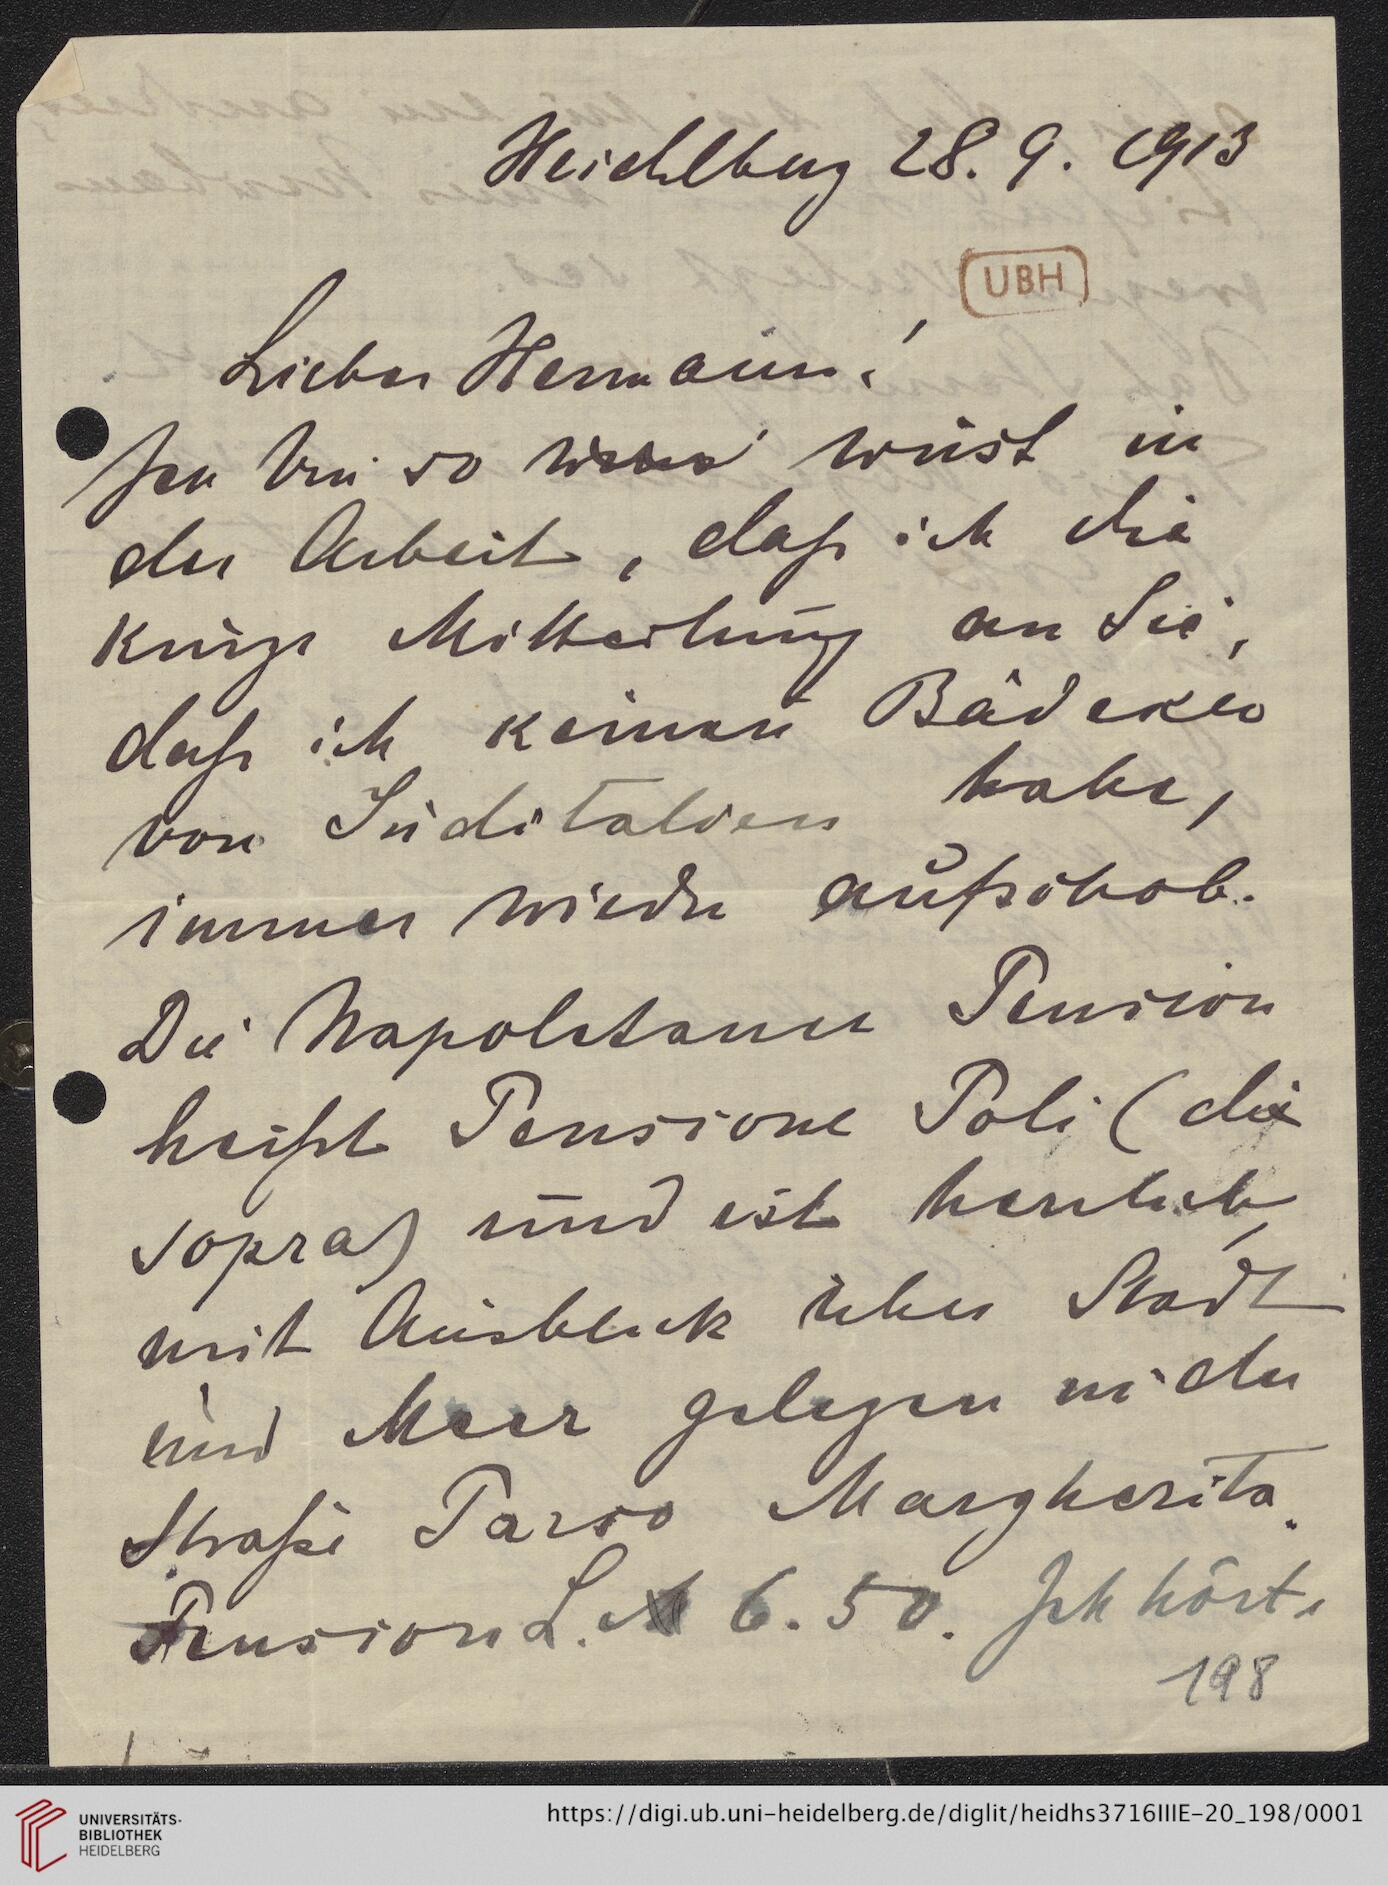 Heidelberg 28. 9. 1913
UBH
Lieber Hermann!
Ich bin so wüst in
der Arbeit, daß ich die
kurze Mitteilung an Sie,
daß ich keinen Bädeker
von Süditalien habe,
immer wieder aufschob.
Die Napoletaner Pension
heißt Pensione Poli (die
sopra) und ist herrlich
mit Ausblick über Stadt
und Meer gelegen in der
Straße Parco Margherita.
Pension L. 6.50. Ich hörte
198
UNIVERSITÄTS-
BIBLIOTHEK
HEIDELBERG
https://digi.ub.uni-heidelberg.de/diglit/heidhs3716IIIE-20_198/0001